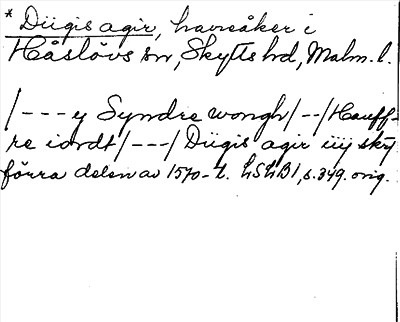 * Düigis agir, havreåker i
Håslövs sn, Skytts hd, Malm. l.
/---y Syndre wongh/--/Hauff-
re iordt/---/ Düigis agir iiij sky
förra delen av 1570-t. LSLB1, s. 349. orig.